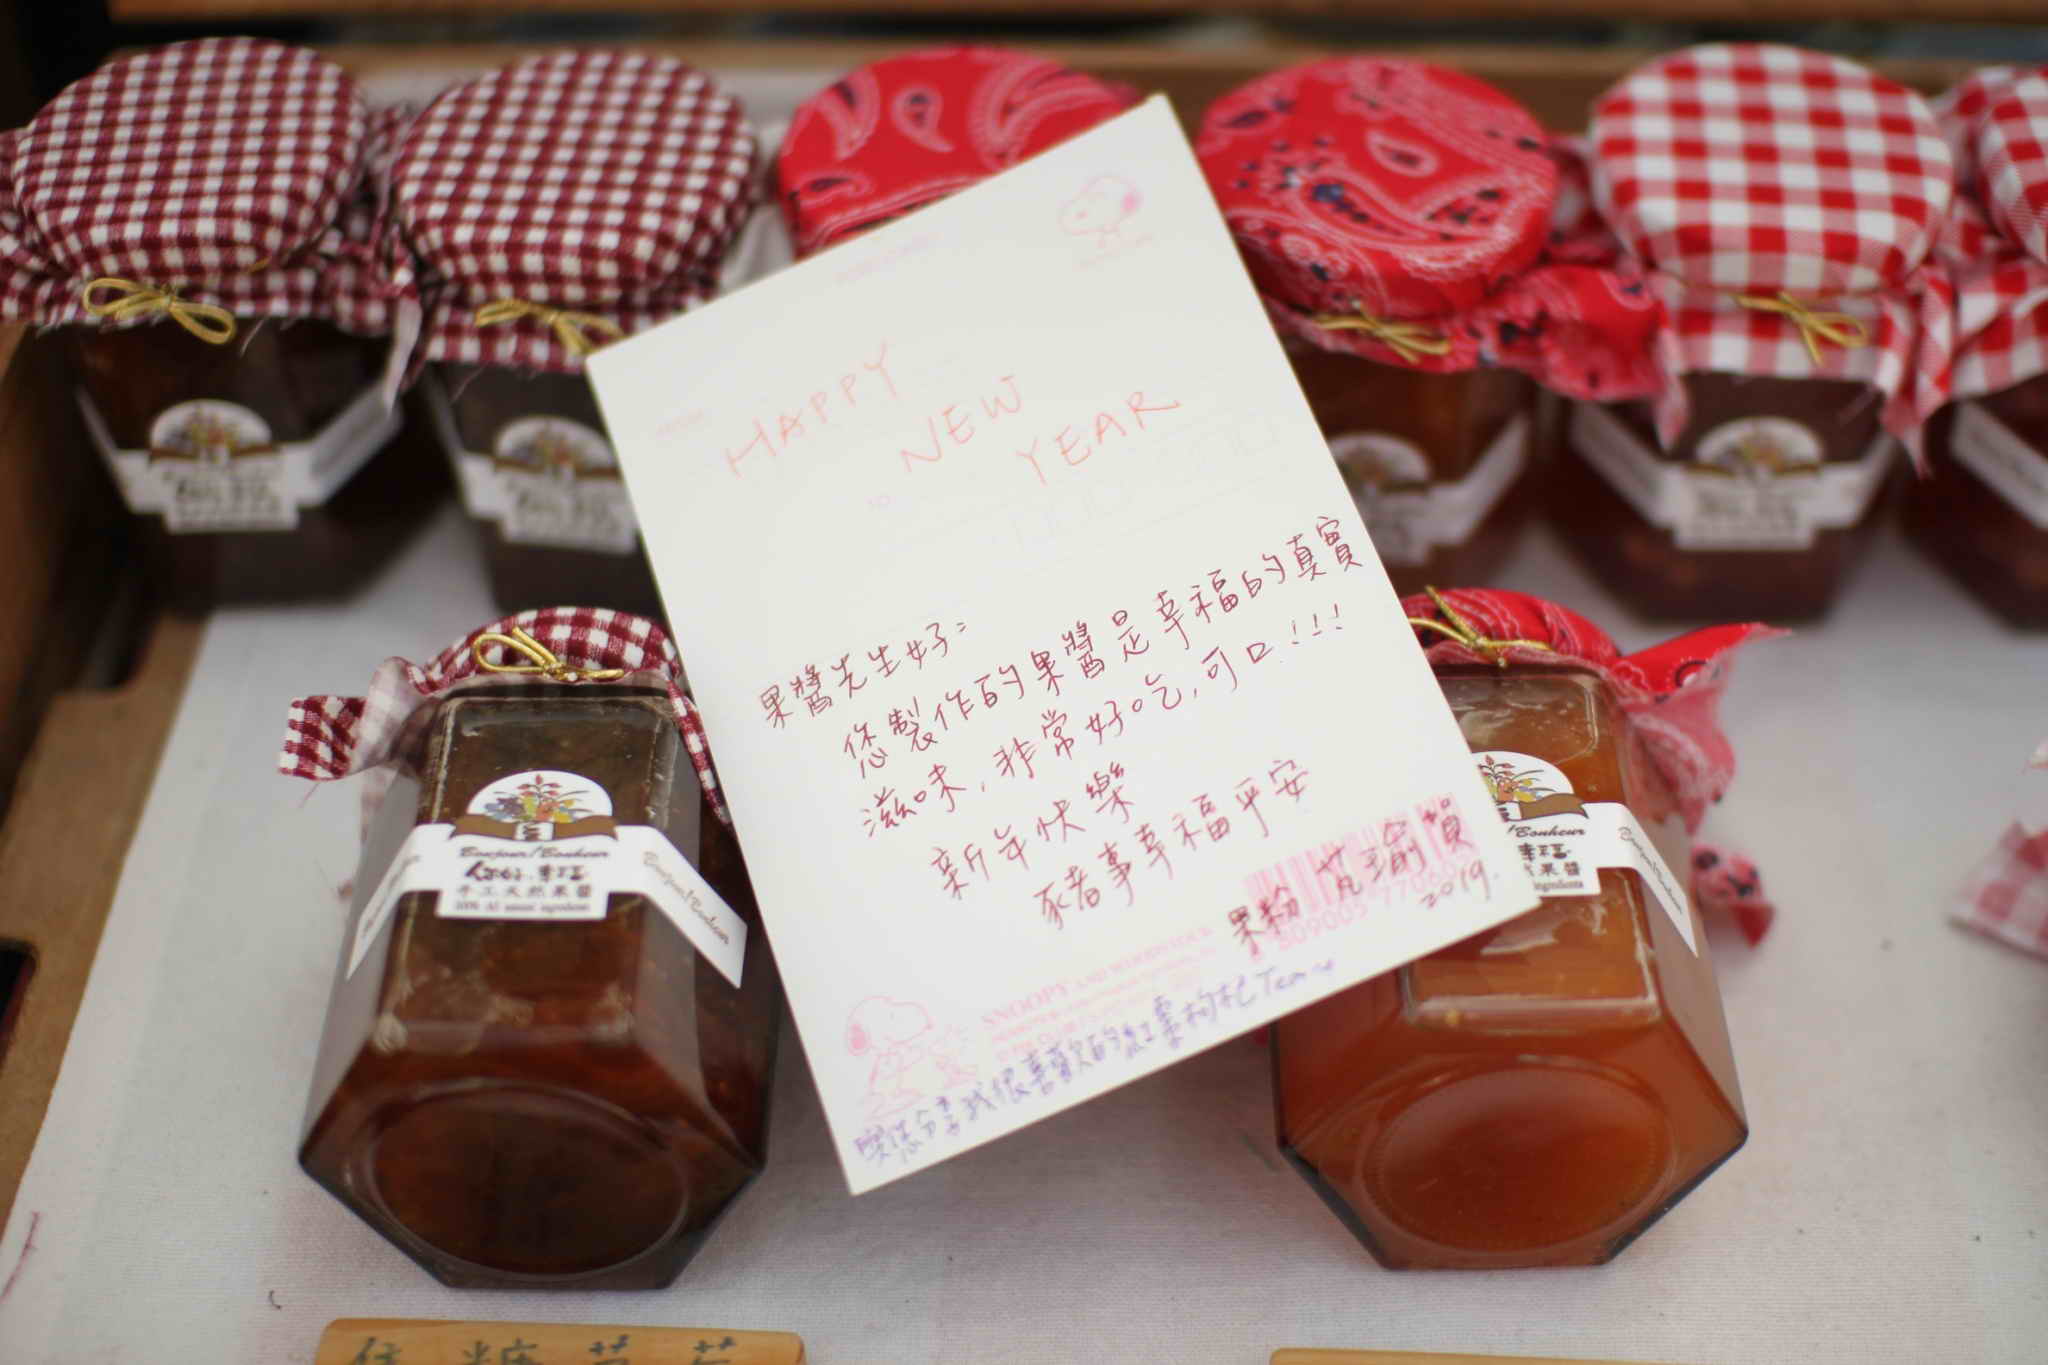 HAPPY
NEW
YEAR
果醬先生好:
您製作的果醬是幸福的真實
滋味,非常好吃,可口!!!
新年快樂
豬事幸福平安
果粉 芃瑜
2019.
SNOOPY AND WOODSTOCK
您分享我很喜歡的紅棗枸杞Tea~
Bonjour! Bonheur
你好.幸福
手工天然果醬
100% All natural ingredients
Bonjour! Bonheur
/Bonheur
幸福
然果醬
ingredients
焦糖